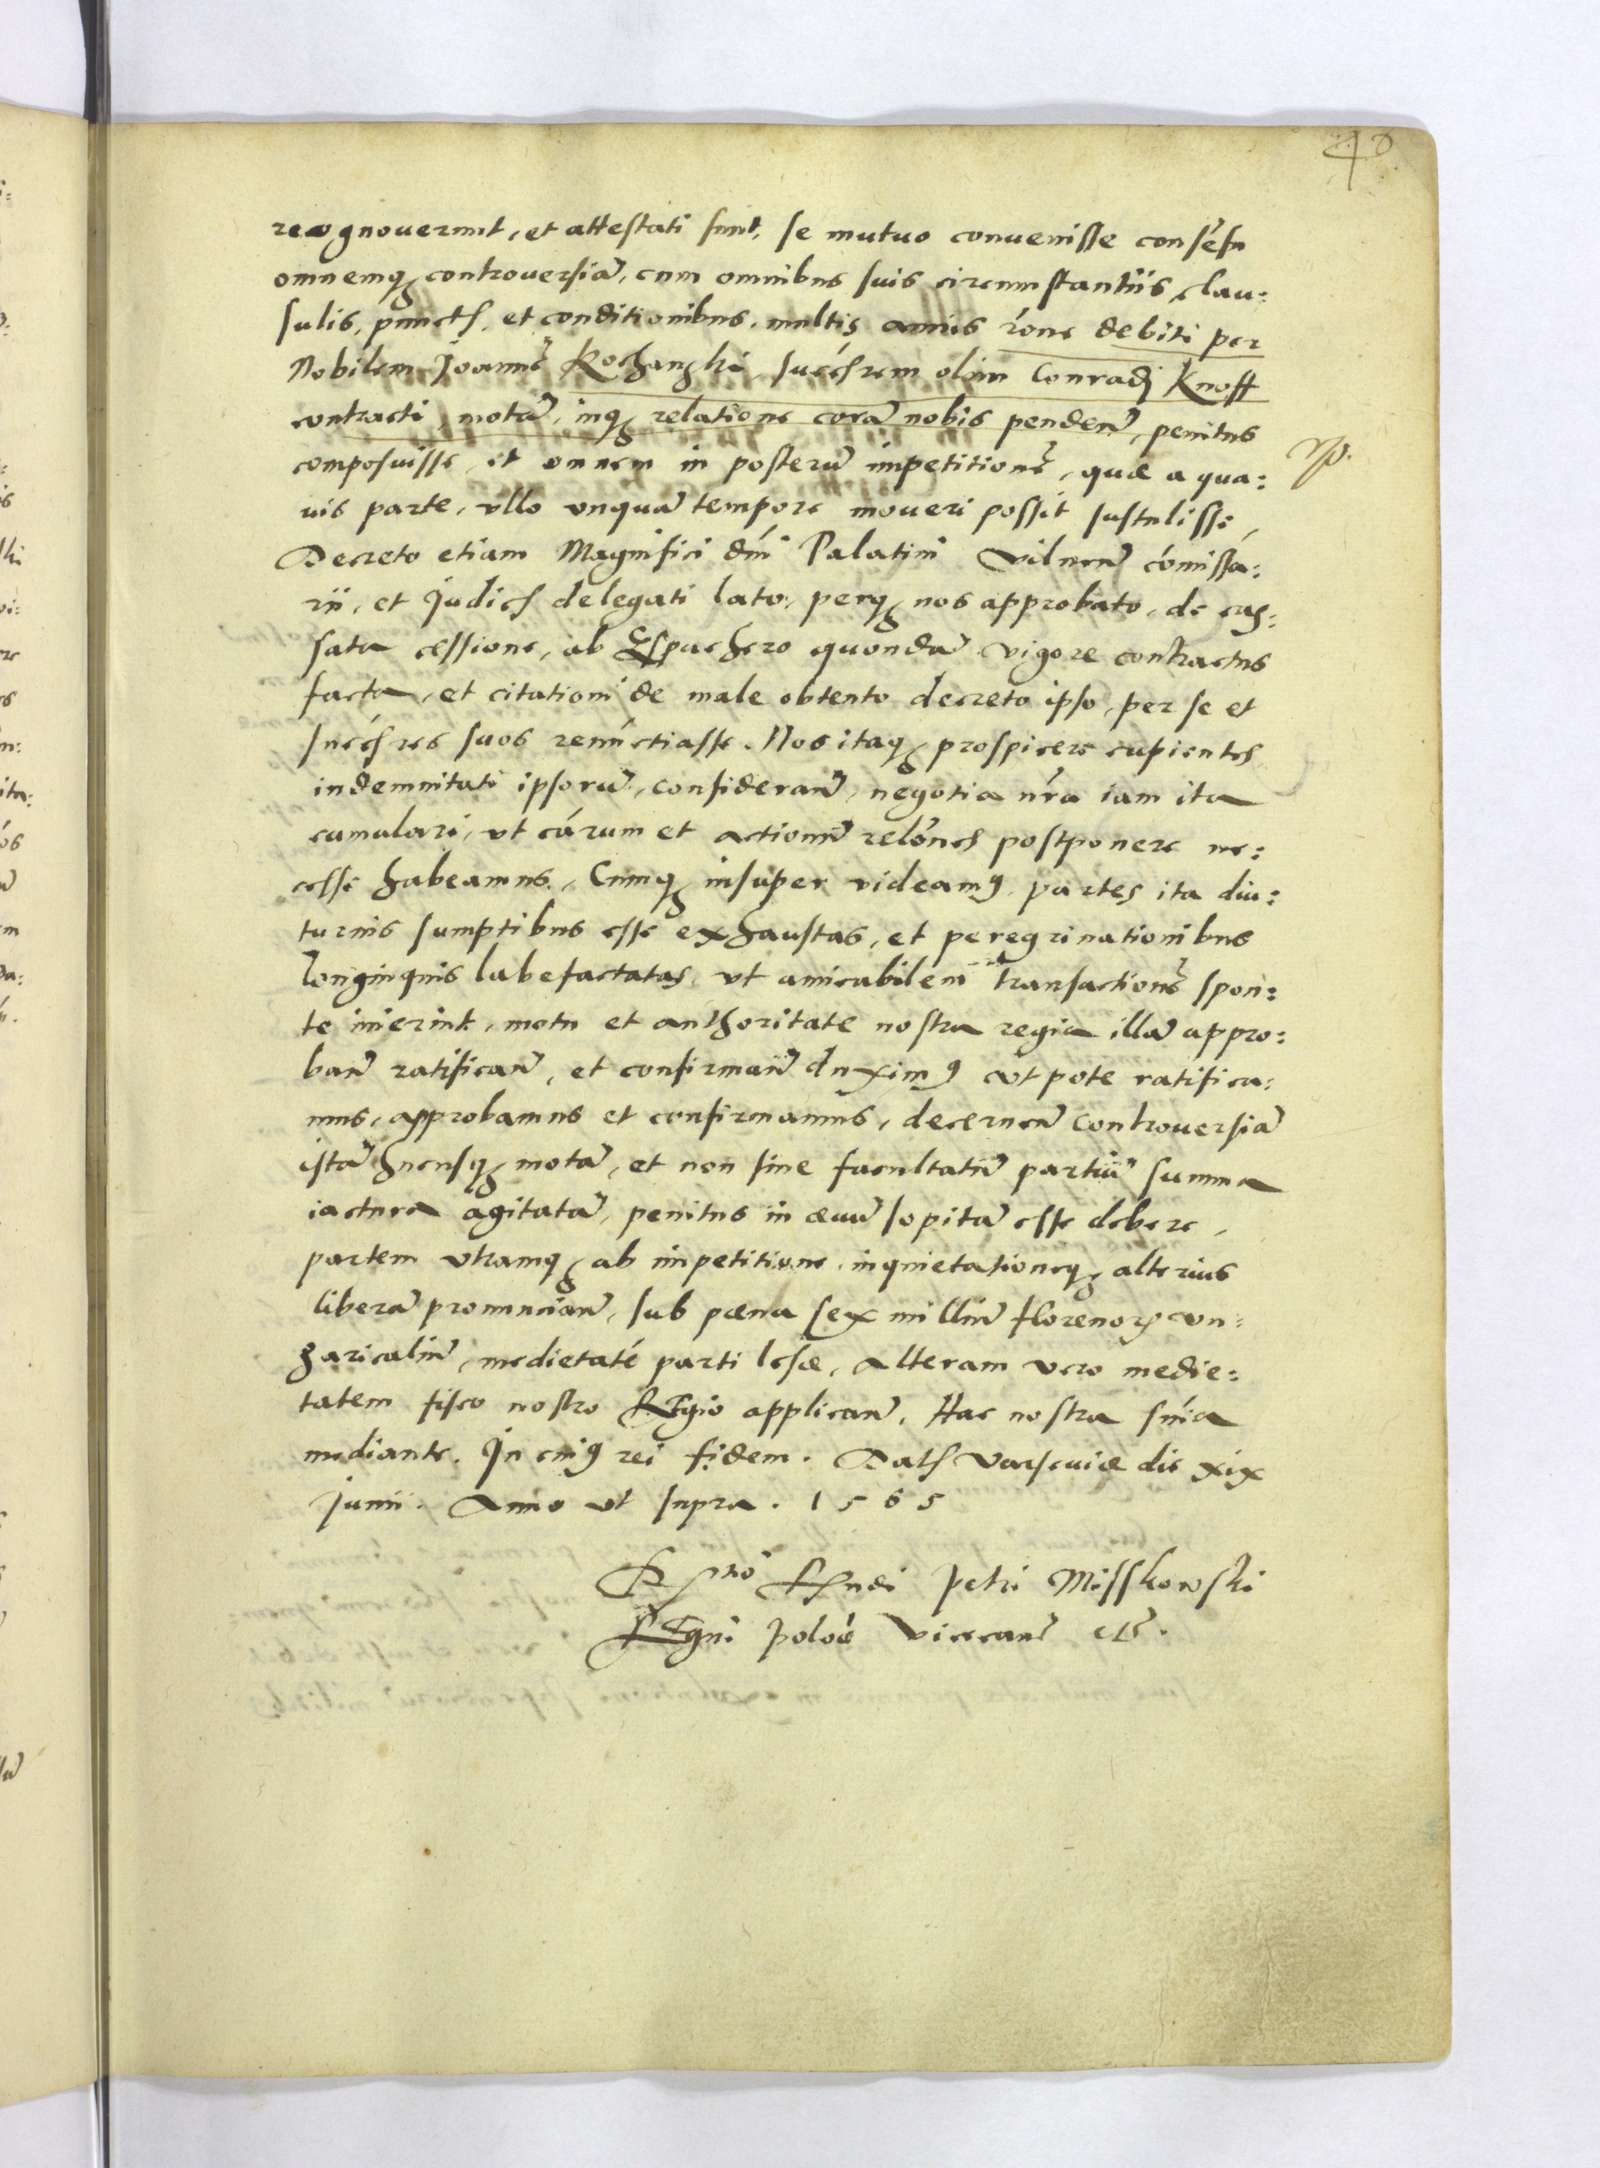 40
recognouerunt, et attestati sunt, se mutuo conuenisse consēsu
omnemq; controuersiā, cum omnibus suis circumstantiis, clau:
sulis, punctis, et conditionibus, multis annis rōne debiti per
Nobilem Joannē Kochanski, succēsrem olim Conradi Knoff
contracti, motā, inq; relatione corā nobis penden̄, penitus
composuisse, et omnem in posterū impetitionē, quæ a qua:
uis parte, vllo vnquā tempore moueri possit sustulisse,
Decreto etiam Magnifici dn̄i Palatini Vilnen̄ cōmissa:
rii, et Judicis delegati lato, perq; nos approbato, de cas:
sata cessione, ab Espachero quondā vigore contractus
facta, et citationi de male obtento decreto ipso, per se et
succēsres suos renūctiasse. Nos itaq; prospicere cupientes
indemnitati ipsorū, consideran̄, negotia nr̄a iam ita
cumulari, vt cārum et actionū relōnes postponere ne:
cesse habeamus, Cumq; insuper videamus partes ita diu:
turnis sumptibus esse exhaustas, et peregrinationibus
longinquis labefactatas, vt amicabilem transactionē spon:
te inierint, motu et authoritate nostra regia illā appro:
ban̄ ratifican̄, et confirman̄ duximus vt pote ratifica:
mus, approbamus et confirmamus, decernen̄ controuersiā
istā hucusq; motā, et non sine facultatū partiū summa
iactura agitatā, penitus in æuū sopitā esse debere,
partem vtramq; ab impetitione, inquietationeq; alterius
liberā pronuncian̄, sub pœna sex milliū florenorum vn:
garicaliū, medietatē parti lesæ, alteram vero medie:
tatem fisco nostro Regio applican̄, Hac nostra sn̄ia
mediante. In cuius rei fidem. Datis Varsouiæ die xix
Junii. Anno vt supra. 1565
Rtio Rsndi Petri Misskowski
Regni Polōæ Vicecan̄ etc.